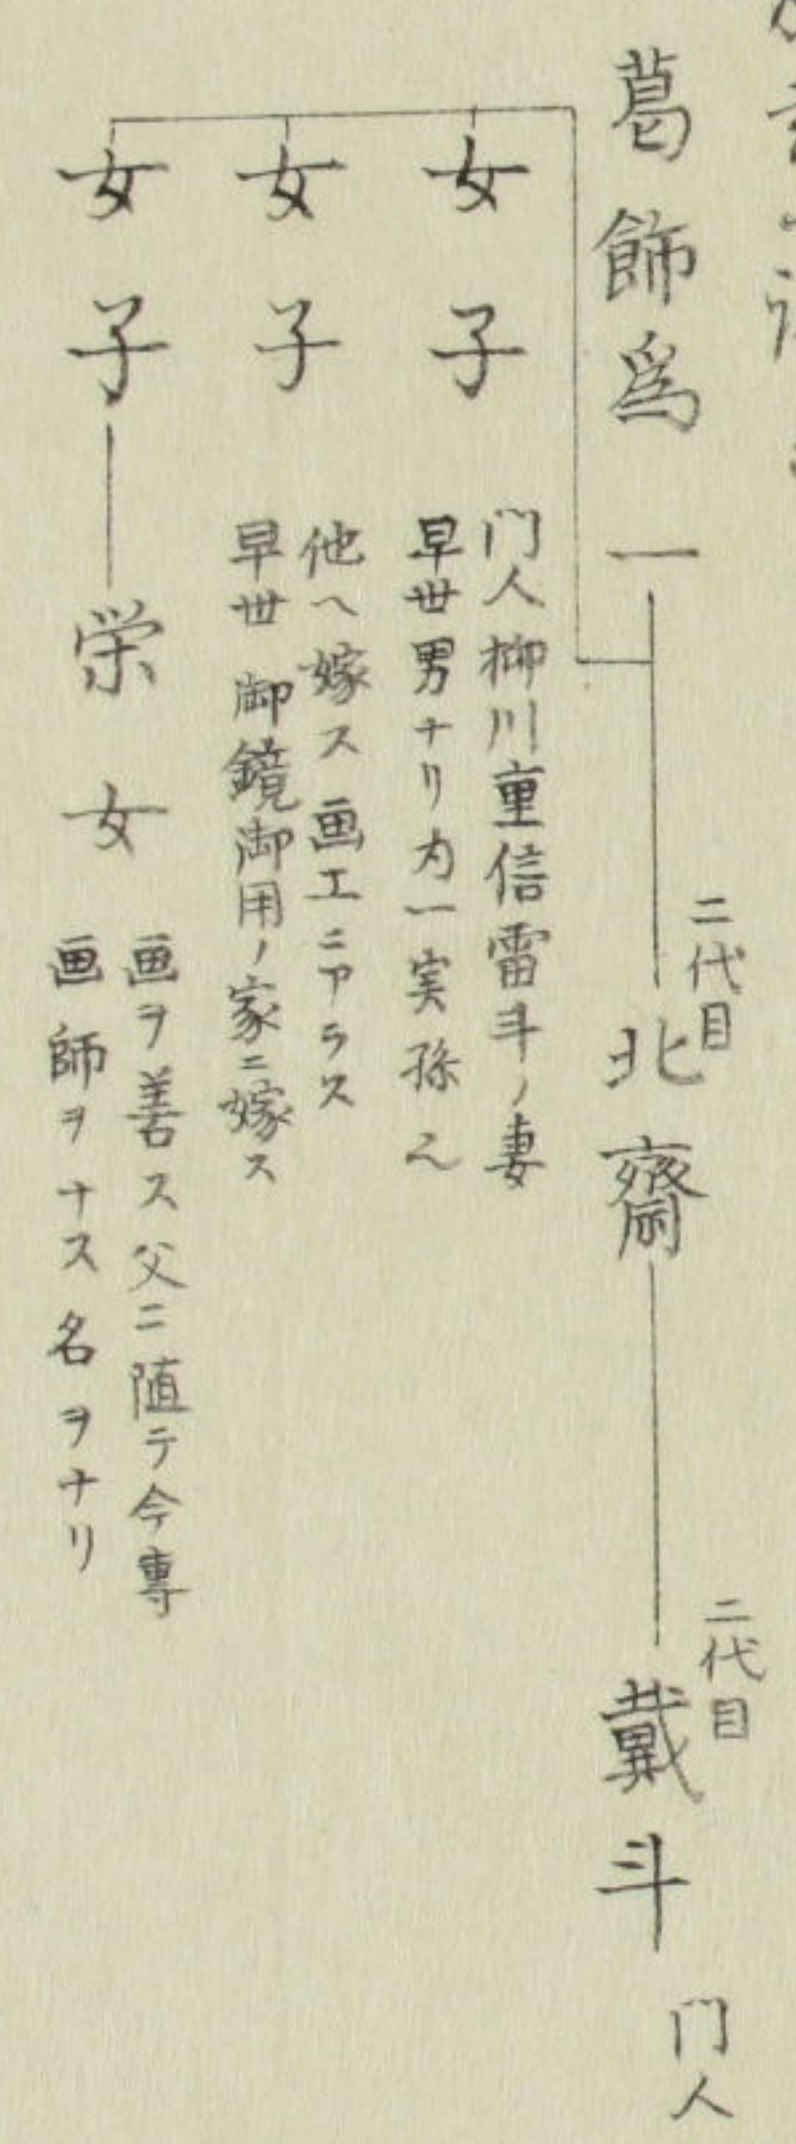 葛飾為一
二代目
北齋
二代目
戴斗
门人
女子
门人柳川重信雷斗ノ妻
早世男ナリ内一実孫也
女子
他ヘ嫁ス画工ニアラス
早世 御鏡御用ノ家ニ嫁ス
女子
栄女
画ヲ善ス父ニ随テ今專
画師ヲナス名ヲナリ